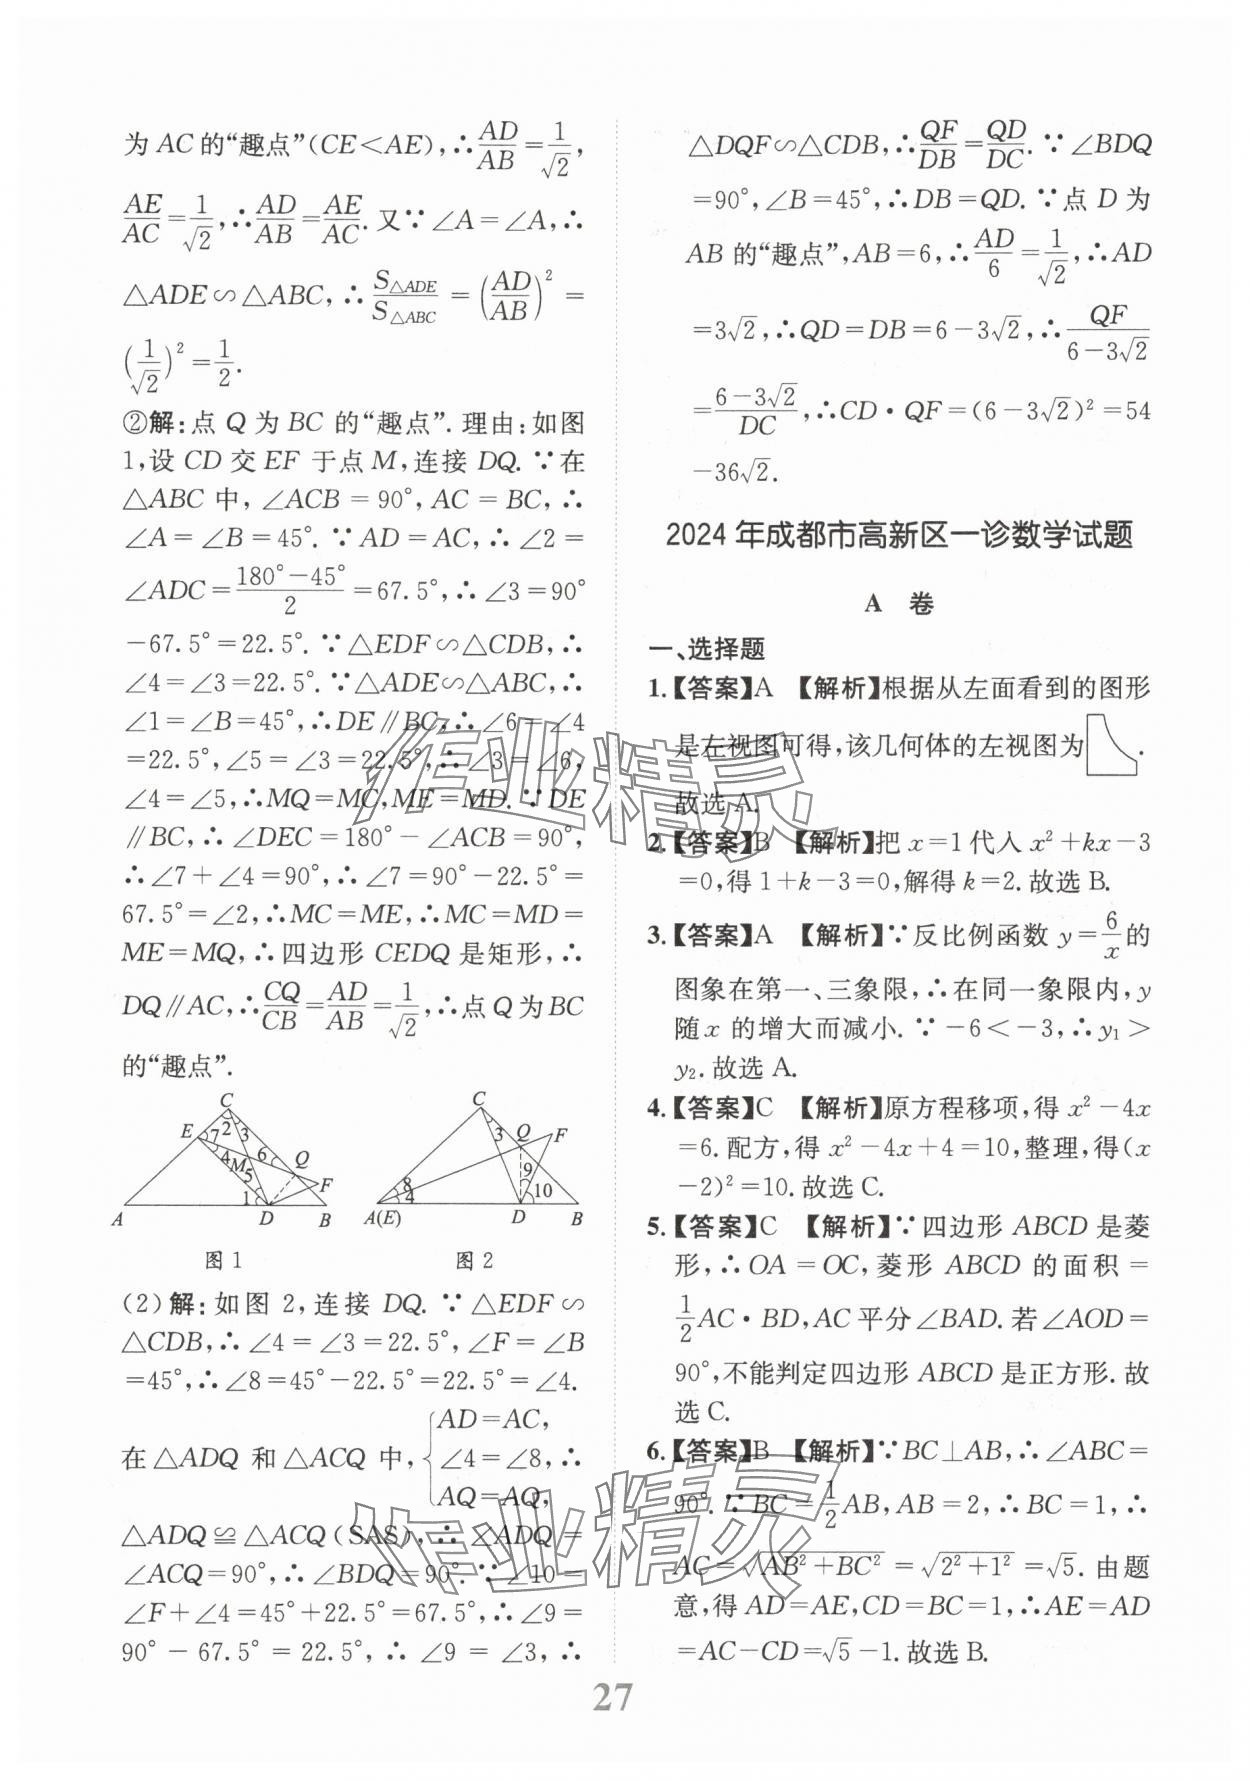 为 AC 的“趣点”(CE<AE),∴AD/AB=1/√2,
AE/AC=1/√2,∴AD/AB=AE/AC.又∵∠A=∠A,∴
△ADE∽△ABC,∴S△ADE/S△ABC=(AD/AB)²=
(1/√2)²=1/2.
②解:点 Q 为 BC 的“趣点”.理由:如图
1,设 CD 交 EF 于点 M,连接 DQ.∵在
△ABC 中,∠ACB=90°,AC=BC,∴
∠A=∠B=45°.∵AD=AC,∴∠2=
∠ADC=(180°-45°)/2=67.5°,∴∠3=90°
-67.5°=22.5°.∵△EDF∽△CDB,∴
∠4=∠3=22.5°.∵△ADE∽△ABC,∴
∠1=∠B=45°,∴DE∥BC,∴∠6=∠4
=22.5°,∠5=∠3=22.5°,∴∠3=∠6,
∠4=∠5,∴MQ=MC,ME=MD.∵DE
∥BC,∴∠DEC=180°-∠ACB=90°,
∴∠7+∠4=90°,∴∠7=90°-22.5°=
67.5°=∠2,∴MC=ME,∴MC=MD=
ME=MQ,∴四边形 CEDQ 是矩形,∴
DQ∥AC,∴CQ/CB=AD/AB=1/√2,∴点 Q 为 BC
的“趣点”.
C
E 7 2 3
4 M 6 Q
5 F
1
A D B
图 1
C
3 Q F
8 9
4 10
A(E) D B
图 2
(2)解:如图 2,连接 DQ.∵△EDF∽
△CDB,∴∠4=∠3=22.5°,∠F=∠B
=45°,∴∠8=45°-22.5°=22.5°=∠4.
在△ADQ 和△ACQ 中,{AD=AC,
∠4=∠8,∴
AQ=AQ,
△ADQ≌△ACQ(SAS),∴∠ADQ=
∠ACQ=90°,∴∠BDQ=90°.∵∠10=
∠F+∠4=45°+22.5°=67.5°,∴∠9=
90°-67.5°=22.5°,∴∠9=∠3,∴
△DQF∽△CDB,∴QF/DB=QD/DC.∵∠BDQ
=90°,∠B=45°,∴DB=QD.∵点 D 为
AB 的“趣点”,AB=6,∴AD/6=1/√2,∴AD
=3√2,∴QD=DB=6-3√2,∴QF/(6-3√2)
=(6-3√2)/DC,∴CD·QF=(6-3√2)²=54
-36√2.
2024 年成都市高新区一诊数学试题
A 卷
一、选择题
1.【答案】A 【解析】根据从左面看到的图形
是左视图可得,该几何体的左视图为 .
故选 A.
2.【答案】B 【解析】把 x=1 代入 x²+kx-3
=0,得 1+k-3=0,解得 k=2.故选 B.
3.【答案】A 【解析】∵反比例函数 y=6/x的
图象在第一、三象限,∴在同一象限内,y
随 x 的增大而减小.∵-6<-3,∴y₁>
y₂.故选 A.
4.【答案】C 【解析】原方程移项,得 x²-4x
=6.配方,得 x²-4x+4=10,整理,得(x
-2)²=10.故选 C.
5.【答案】C 【解析】∵四边形 ABCD 是菱
形,∴OA=OC,菱形 ABCD 的面积=
1/2AC·BD,AC 平分∠BAD.若∠AOD=
90°,不能判定四边形 ABCD 是正方形.故
选 C.
6.【答案】B 【解析】∵BC⊥AB,∴∠ABC=
90°.∵BC=1/2AB,AB=2,∴BC=1,∴
AC=√(AB²+BC²)=√(2²+1²)=√5.由题
意,得 AD=AE,CD=BC=1,∴AE=AD
=AC-CD=√5-1.故选 B.
27
作业精灵
作业精灵